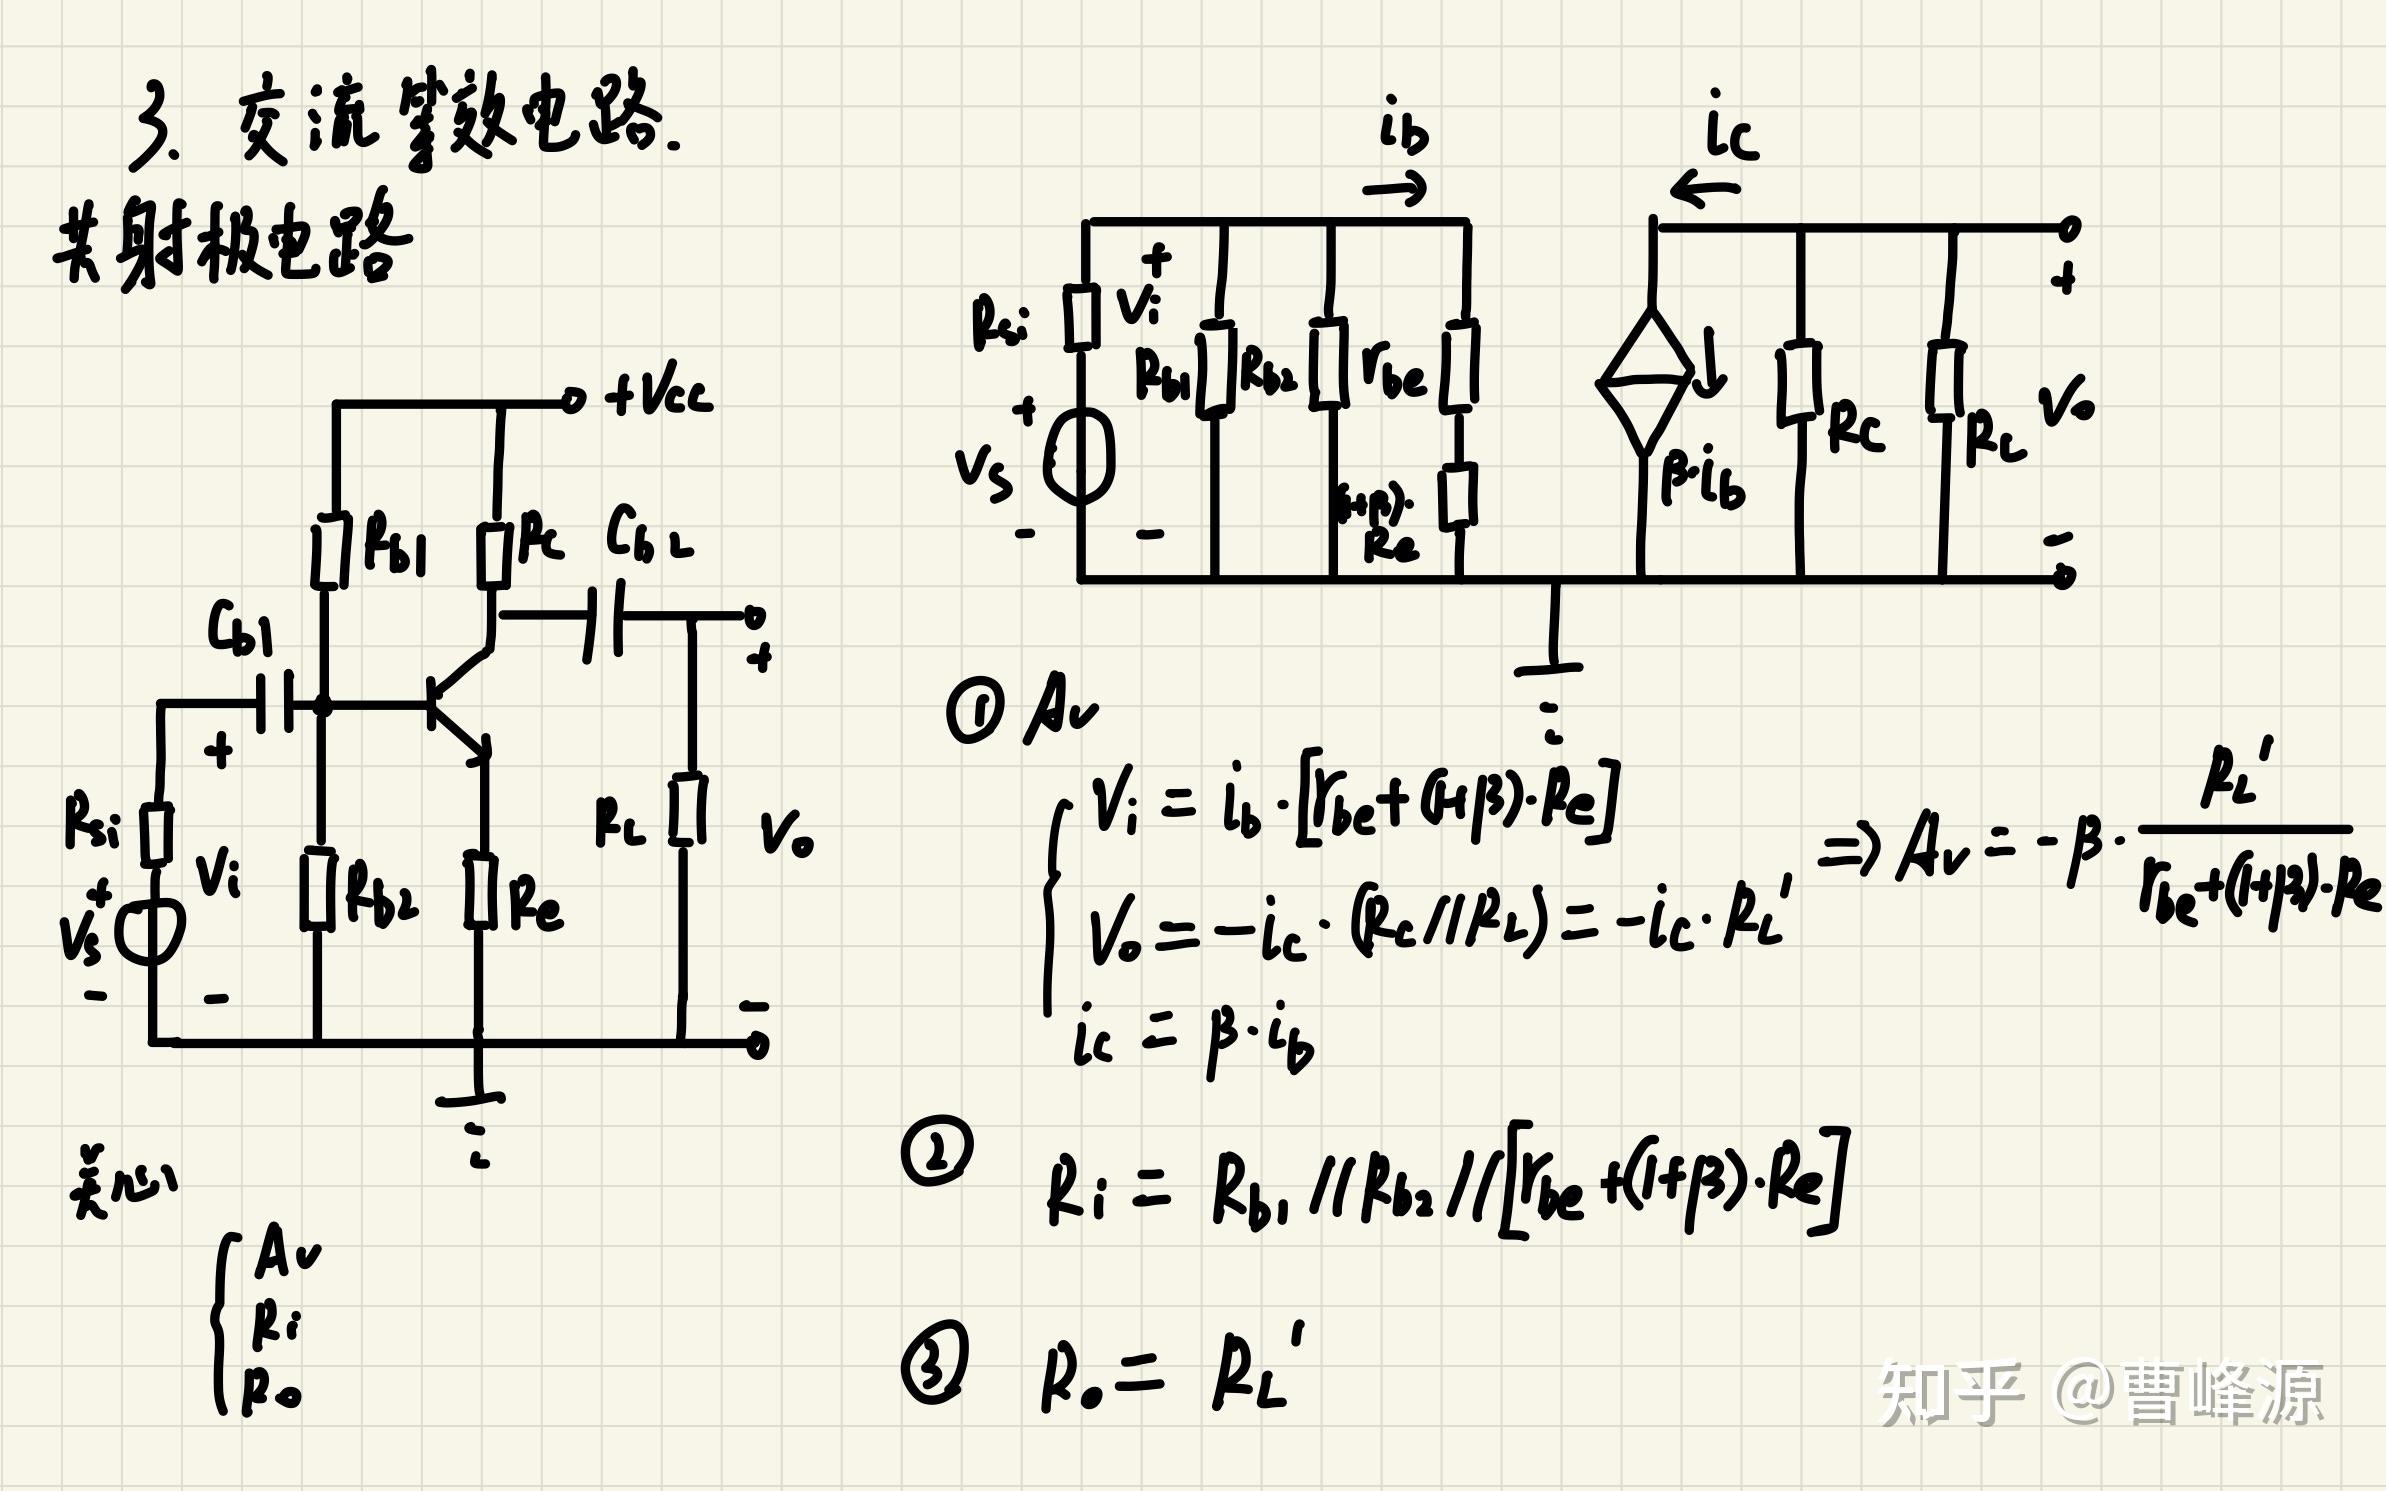 3. 交流等效电路.
共射极电路
+Vcc
Rb1
Rc
Cb2
Cb1
+
Rsi
Vi
+
Vs
-
-
Rb2
Re
RL
+
Vo
-
关心
Av
Ri
Ro
ib
ic
Rsi
+
Vi
-
+
Vs
-
Rb1
Rb2
rbe
(1+β)·
Re
β·ib
Rc
RL
+
Vo
-
① Av
Vi = ib·[rbe+(1+β)·Re]
Vo = -ic·(Rc//RL) = -ic·RL'
ic = β·ib
⇒ Av = -β· RL' / rbe+(1+β)·Re
② Ri = Rb1//Rb2//[rbe+(1+β)·Re]
③ Ro = RL'
知乎 @曹峰源